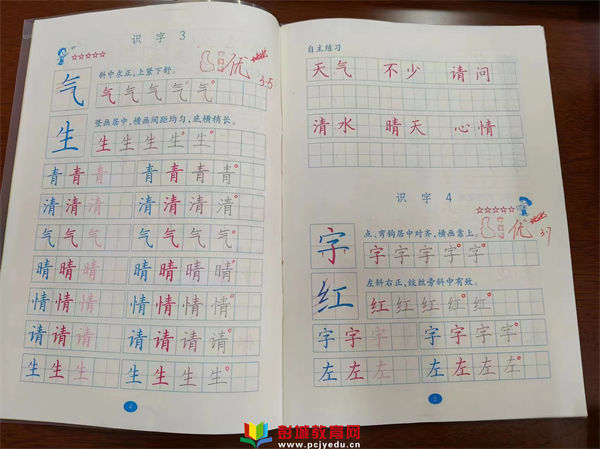 识字 3
优
3.5
气
斜中求正，上紧下舒。
气 气 气 气 气
生
竖画居中，横画间距均匀，底横稍长。
生 生 生 生 生
青 青 青 青 青 青 青
清 清 清 清 清 清 清
气 气 气 气 气 气 气
晴 晴 晴 晴 晴 晴 晴
情 情 情 情 情 情 情
请 请 请 请 请 请 请
生 生 生 生 生 生 生
4
自主练习
天气 不少 请问
清水 晴天 心情
识字 4
优
3.7
字
点、弯钩居中对齐，横画靠上。
字 字 字 字 字
红
左斜右正，绞丝旁斜中有效。
红 红 红 红 红
字 字 字 字 字 字 字
左 左 左 左 左 左 左
5
彭城教育网
www.pcjyedu.cn